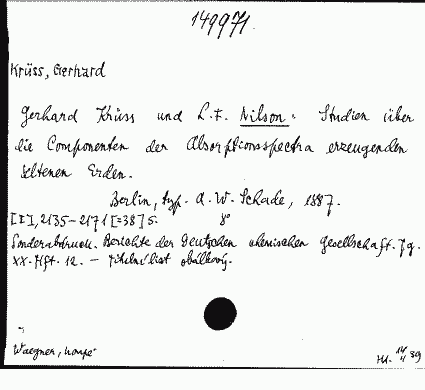 149971.
Krüss, Gerhard
Gerhard Krüss und L. F. Nilson: Studien über
die Componenten der Absorptionsspectra erzeugenden
seltenen Erden.
Berlin, typ. A. W. Schade, 1887.
[I], 2135-2171 [=38] s. 8°
Sonderabdruck. Berichte der Deutschen chemischen Gesellschaft. Jg.
XX. Hft. 12. - Titelní list obálkový.
Waegner, koupě
14/4 39